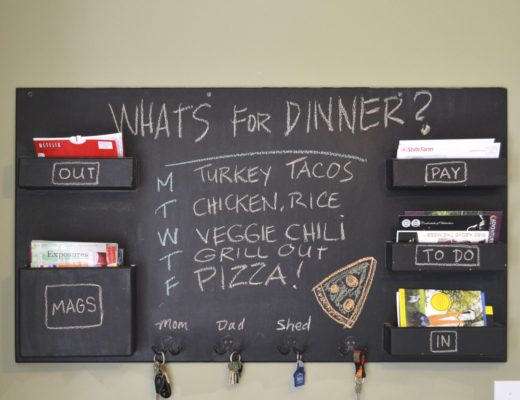 WHATS FOR DINNER?
NETFLIX
OUT
StateFarm
PAY
M TURKEY TACOS
T CHICKEN, RICE
W VEGGIE CHILI
T GRILL OUT
F PIZZA!
TO DO
Exposures
MAGS
IN
Mom Dad Shed